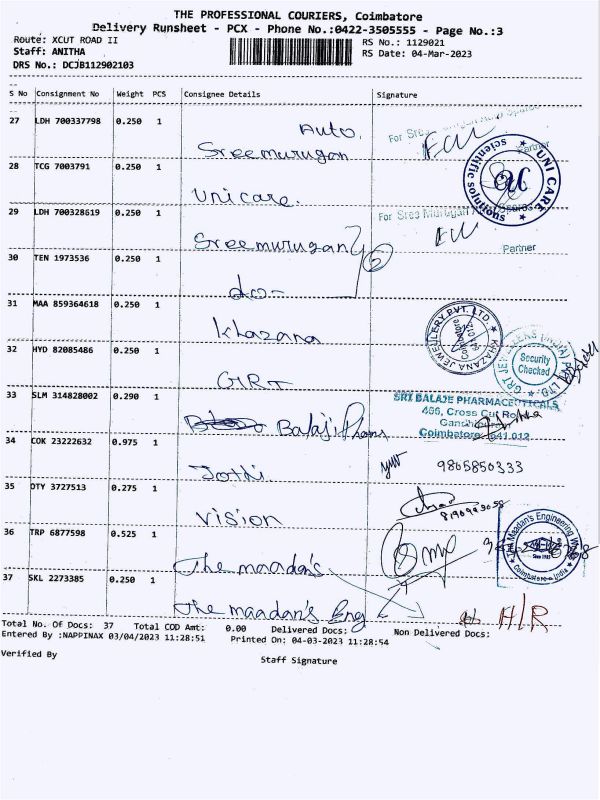 THE PROFESSIONAL COURIERS, Coimbatore
Delivery Runsheet - PCX - Phone No.:0422-3505555 - Page No.:3
Route: XCUT ROAD II
RS No.: 1129021
Staff: ANITHA
RS Date: 04-Mar-2023
DRS No.: DCJB112902103
S No Consignment No Weight PCS Consignee Details Signature
27 LDH 700337798 0.250 1 Auto. Sreemurugan
For Sree
Partner
28 TCG 7003791 0.250 1 Unicare.
UNI CARE scientific solutions
29 LDH 700328619 0.250 1 Sreemurugan
For Sree Murugan
Partner
30 TEN 1973536 0.250 1 do-
2
31 MAA 859364618 0.250 1 Khazana
KHAZANA JEWELLERY PVT. LTD.
32 HYD 82085486 0.250 1 GRT
GRT JEWELLERS (INDIA) PVT. LTD.
Security Checked
33 SLM 314828002 0.290 1 Balaji Pharms
SRI BALAJE PHARMACEUTICALS
466, Cross Cut Ro
Gandhipuram
Coimbatore - 641 012
34 COK 23222632 0.975 1 Jothi
9865850333
35 OTY 3727513 0.275 1 Vision
36 TRP 6877598 0.525 1 The maadan's
The Maadan's Engineering
Coimbatore - India
37 SKL 2273385 0.250 1 The maadan's Eng
H/R
Total No. Of Docs: 37 Total COD Amt: 0.00 Delivered Docs: Non Delivered Docs:
Entered By :NAPPINAX 03/04/2023 11:28:51 Printed On: 04-03-2023 11:28:54
Verified By
Staff Signature